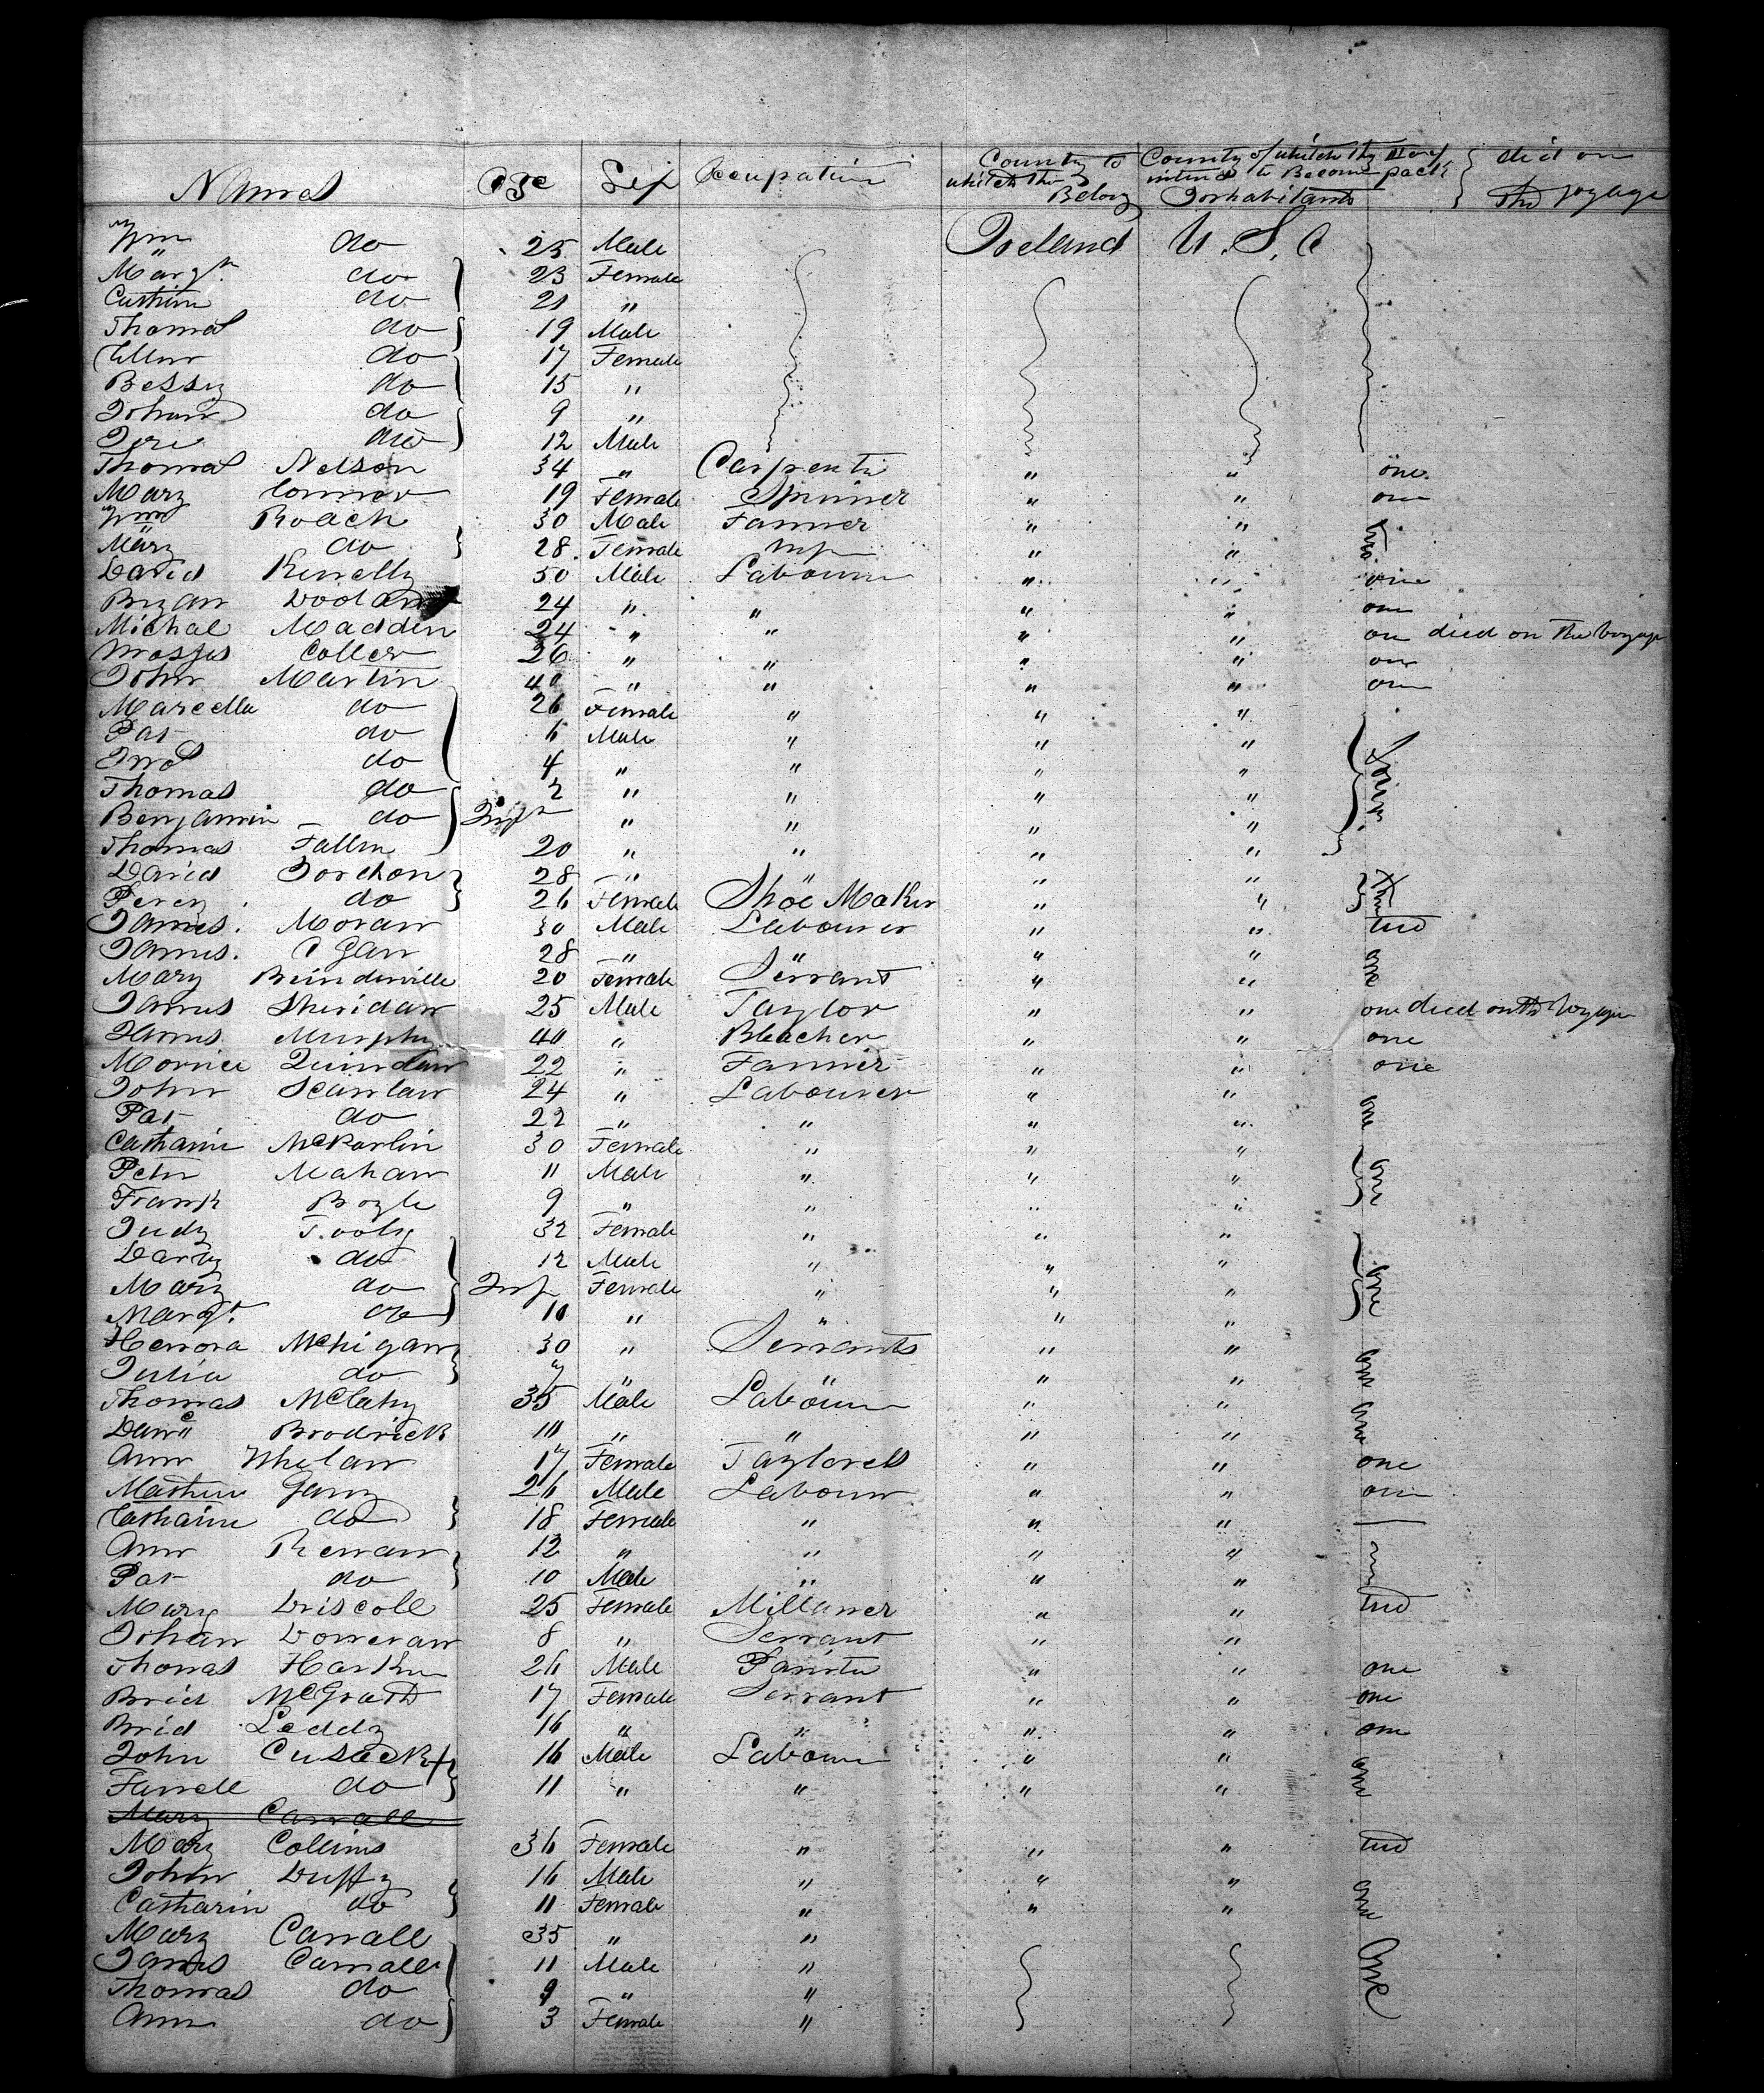 Names Age Sex Occupation County to which the Belong County of which they intend to Become Inhabitants died on the voyage
Wm do 25 Male Ireland U.S.
Margt do 23 Female
do 21 "
Thomas do 19 Male
Ellen do 17 Female
Bessy do 15 "
Johan do 9 "
do 12 Male
Thomas Nelson 34 " Carpenter " " one
Mary Connor 19 Female Spinner " " one
Wm Roach 30 Male Farmer " " two
Mary do 28 Female " "
David Kennelly 50 Male Labourer " " one
Bryan 24 " " " " one
Michal Madden 24 " " " " one died on the Voyage
Coller 26 " " " " one
John Martin 40 " " " " one
Marcella do 26 Female " " "
Pat do 6 Male " " "
do 4 " " " "
Thomas do 2 " " " "
Benjamin do Inft " " " "
Thomas Fallon 20 " " " "
David 28 " " "
do 26 Female Shoe Maker " "
James Moran 30 Male Labourer " " two
James Egan 28 " " " "
Mary 20 Female Servant " " one
James Sheridan 25 Male Taylor " " one died on the Voyage
James Murphy 40 " Bleacher " " one
Morrice Quinlan 22 " Farmer " " one
John Scanlan 24 " Labourer " "
Pat do 22 " " " " one
Catharine McParlin 30 Female " " "
Peter Mahan 11 Male " " " one
Frank Boyle 9 " " " "
Judy Tooly 32 Female " " "
Darby do 12 Male " " "
Mary do Inf Female " " " one
Margt do 10 " " " "
Hennora McHigan 30 " Servants " "
Julia do 7 " " " one
Thomas McClahy 35 Male Labourer " "
Danl Brodrick 11 " " " " one
Ann Whelan 17 Female Tayloress " " one
Mathew Garry 26 Male Labourer " " one
Catharine do 18 Female " " "
Ann Kenan 12 " " " "
Pat do 10 Male " " "
Mary Driscoll 25 Female Millaner " " two
Johan Donnevan 8 " Servant " "
Thomas Harkin 26 Male Painter " " one
Brid McGrath 17 Female Servant " " one
Brid Leddy 16 " " " " one
John Cusack 16 Male Labourer " "
Farrell do 11 " " " " one
Mary Carrall
Mary Collins 36 Female " " " two
John Duffy 16 Male " " "
Catharin do 11 Female " " " one
Mary Carrall 35 " "
James Carrall 11 Male " One
Thomas do 9 " "
Ann do 3 Female "